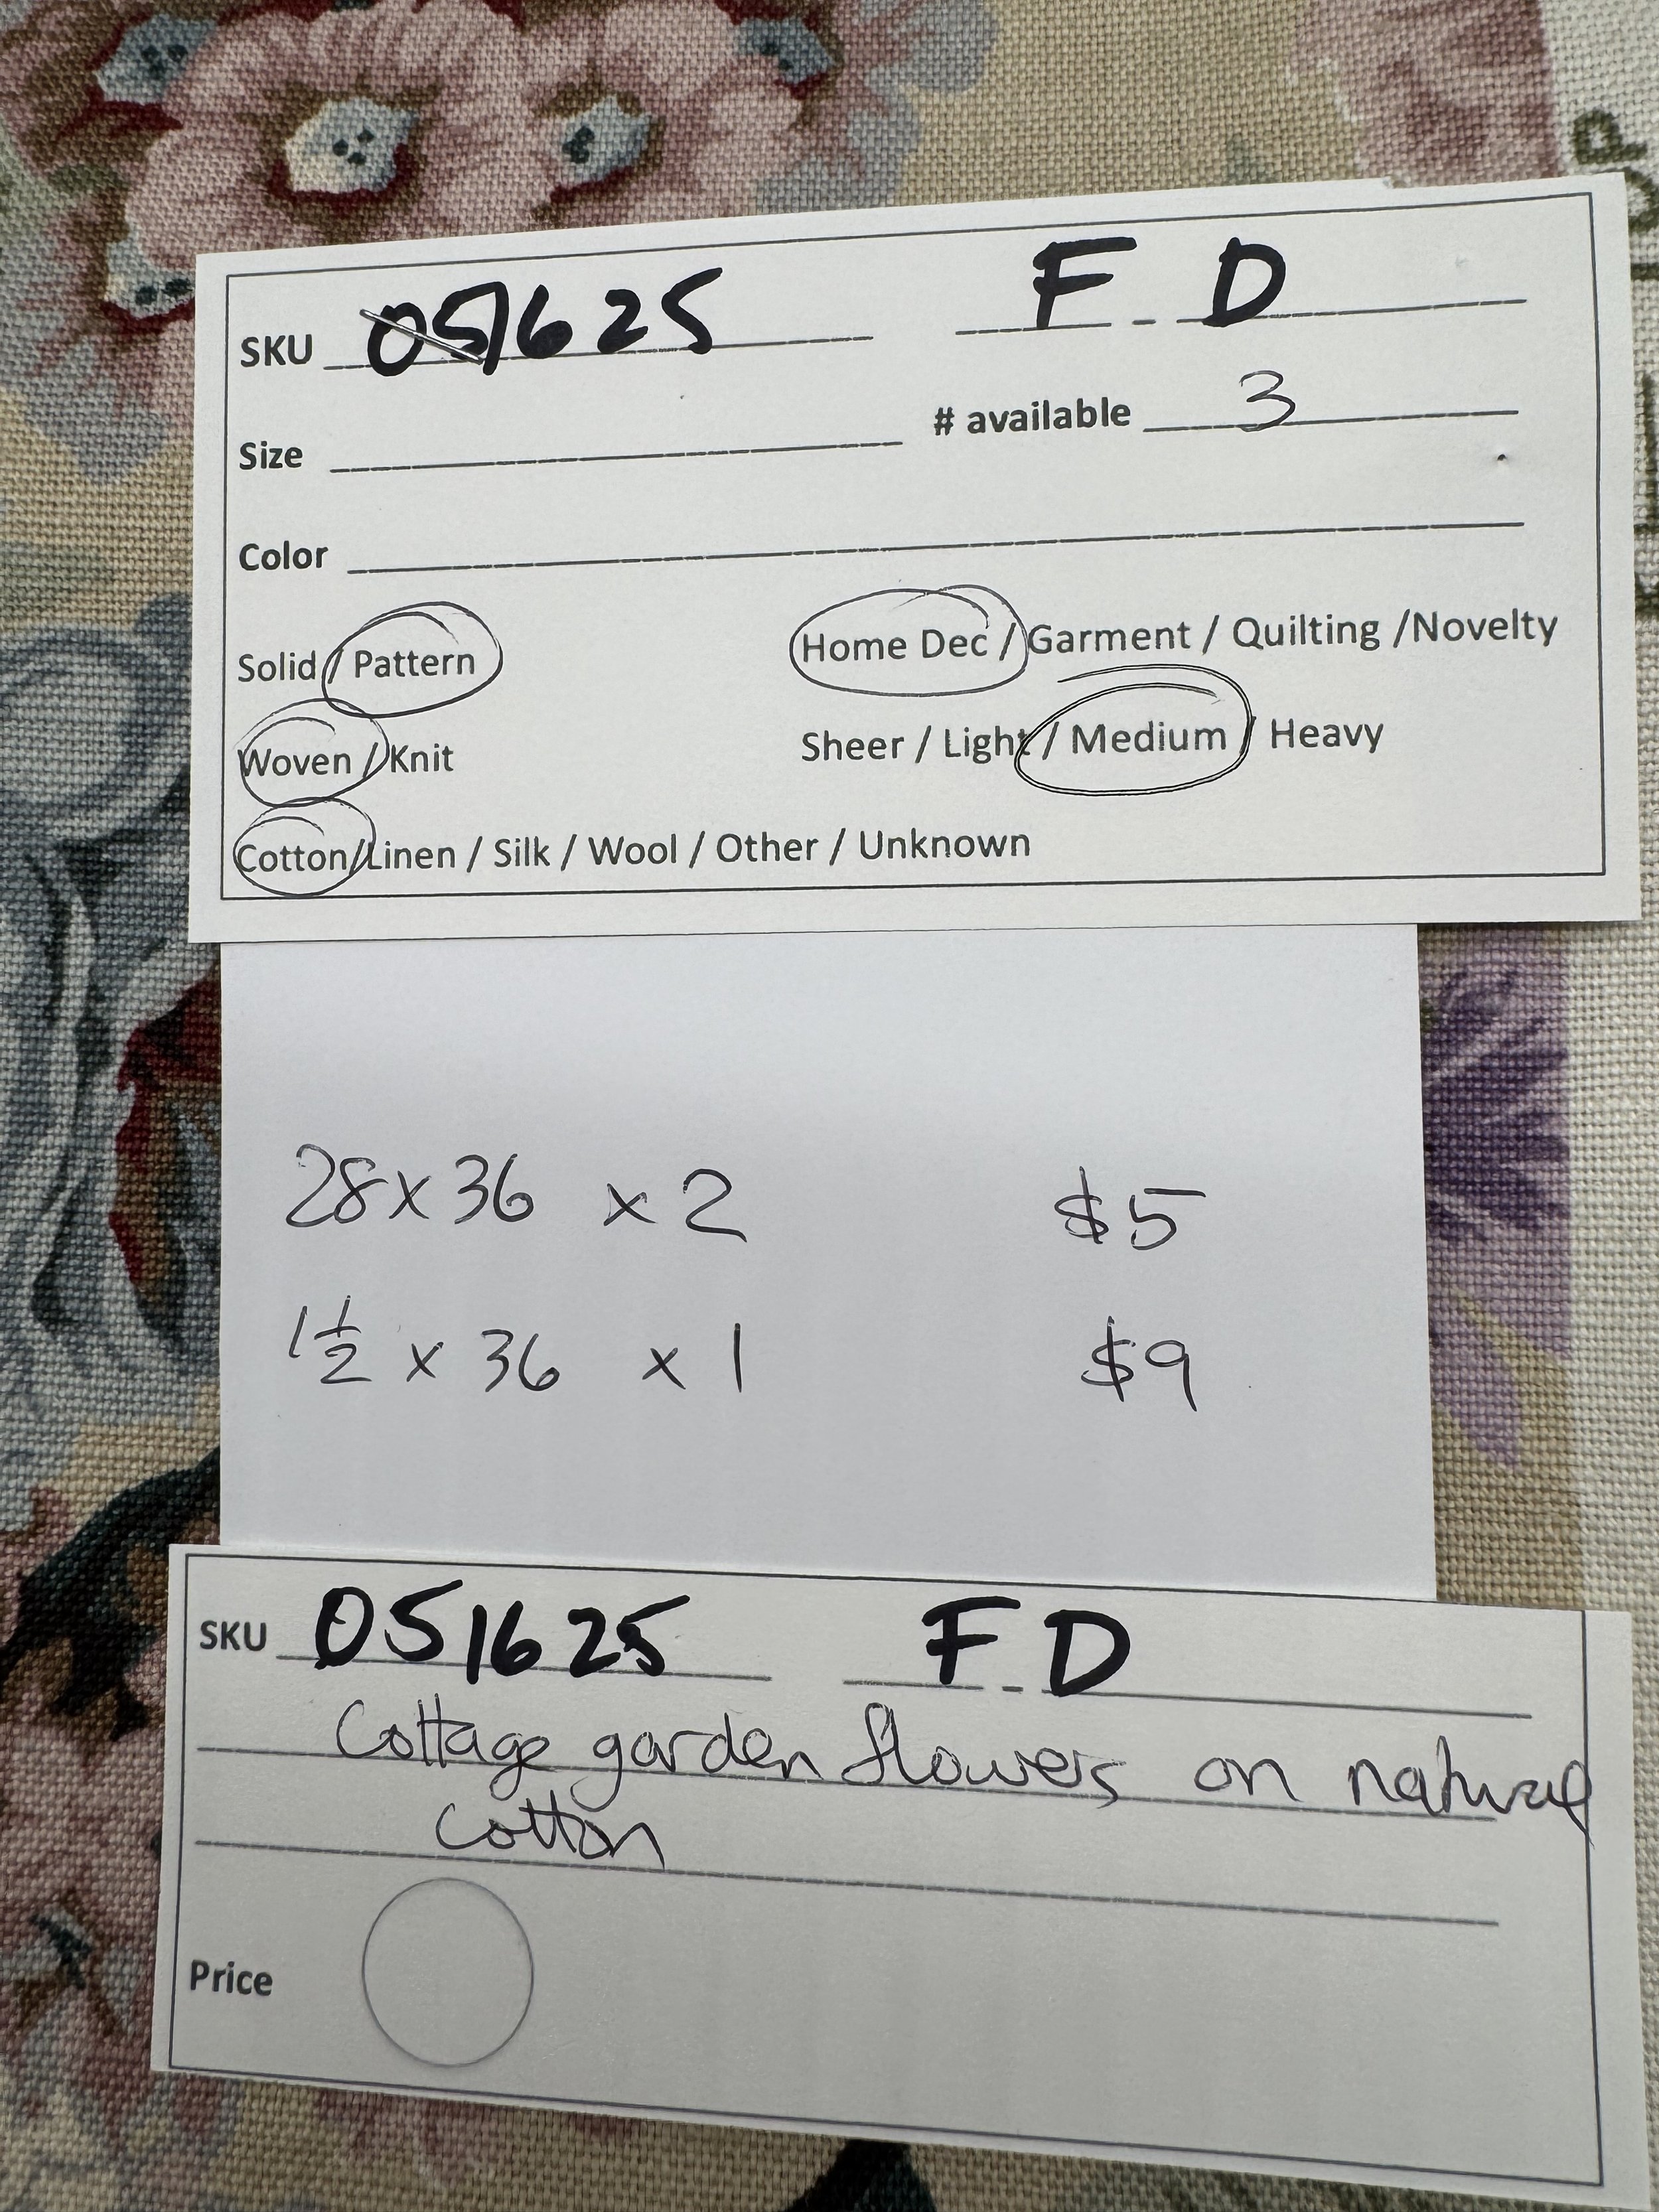 SKU 051625 F - D
Size # available 3
Color
Solid / Pattern Home Dec / Garment / Quilting /Novelty
Woven / Knit Sheer / Light / Medium / Heavy
Cotton/Linen / Silk / Wool / Other / Unknown
28 x 36 x 2 $5
1 1/2 x 36 x 1 $9
SKU 051625 F - D
Cottage garden flowers on natural
cotton
Price